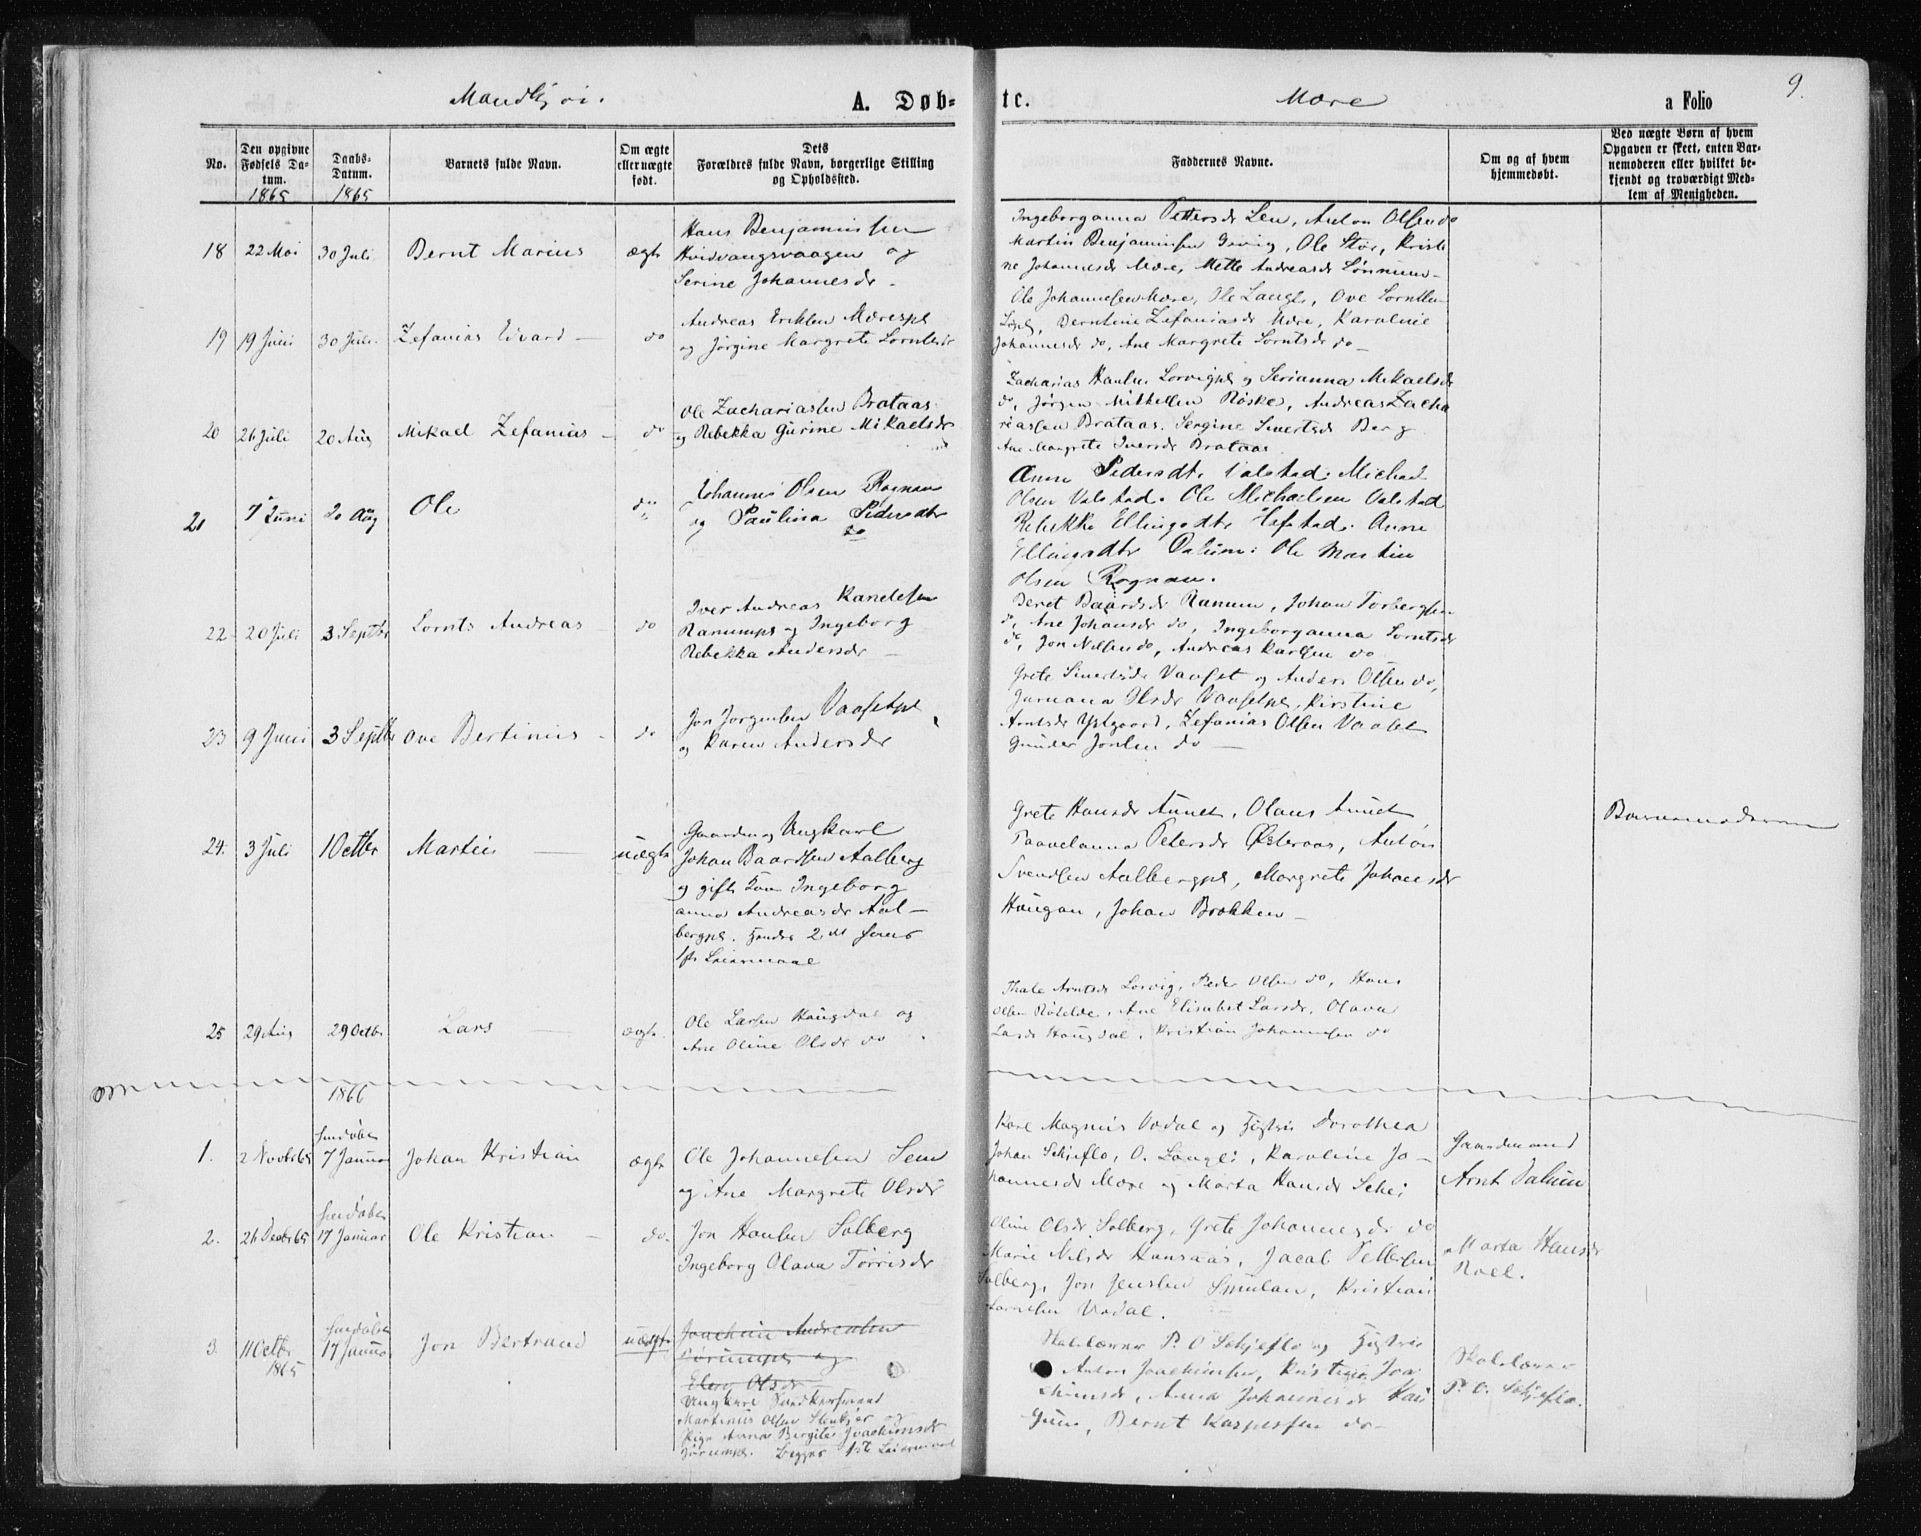 Mandkjøn.
A. Døb-
No.
Den opgivne Fødsels Datum.
1865
Daabs-Datum.
1865
Barnets fulde Navn.
Om ægte eller uægte født.
Dets Forældres fulde Navn, borgerlige Stilling og Opholdssted.
18 22 Mai 30 Juli Bernt Marius ægte
Hans Benjaminsen
Hvidvangsvaagen og
Serine Johannesdr.
19 19 Juni 30 Juli Zefanias Edvard — do
Andreas Eriksen Mærespl
og Jørgine Margrete Lorntsdr
20 26 Juli 20 Aug Mikael Zefanias — do
Ole Zachariassen Brataas
og Rebekka Gurine Mikaelsdr
21 7 Juni 20 Aug Ole do
Johannes Olsen Rognan
og Paulina Pedersdtr
do
22 20 Juli 3 Septbr Lornts Andreas do
Iver Andreas Kandelsen
Ranumpl og Ingeborg
Rebekka Andersdr —
23 9 Juni 3 Septbr Ove Bertinius — do
Jon Jørgensen Vaasetpl
og Karen Andersdr
24. 3 Juli 1 Octbr Martin — uægte
Gaardm og Ungkarl
Johan Baardsen Aalberg
og gift Kone Ingeborg
anna Andreasdr Aal-
bergpl. Hendes 2det hans
1ste Leiermaal
25 29 Aug 29 Octbr Lars — ægte
Ole Larsen Haugdal og
Ane Oline Olsdr do
1866
1. 2 Novbr 65 hmdøbt 7 Januar Johan Kristian ægte
Ole Johannesen Sem
og Ane Margrete Olsdr
2. 26 Decbr 65 hmdøbt 17 Januar Ole Kristian — do.
Jon Hansen Solberg
Ingeborg Olava Tørrisdr
3. 11 Octbr 1865 hmdøbt 17 Januar Jon Bertrand uægte
Joachim Andreassen
Jørumpl og
Elen Olsdr
Ungkarl Sundkarsmand
Martinus Olsen Stenkjer og
Pige Anna Birgite Joachimsdr
Jørumpl. Begges 1ste Leiermaal
te.
Mære
a Folio
9.
Faddernes Navne.
Om og af hvem hjemmedøbt.
Ved uægte Børn af hvem Opgaven er skeet, enten Barnemoderen eller hvilket bekjendt og troværdigt Medlem af Menigheden.
Ingeborganna Pettersdr Sem, Anton Olsen do
Martin Benjaminsen Gevig, Ole Stor, Kristi
ne Johannesdr Mære, Mette Andreasdr Lønnum —
Ole Johannesen Mære, Ole Langli, Ove Lorntsen
Berntine Zefaniasdr Mære, Karoline
Johannesdr do, Ane Margrete Lorntsdr do —
Zacharias Hansen Lorvigpl og Serianna Mikaelsdr
do, Jørgen Mikkelsen Røske, Andreas Zacha
riassen Brataas. Sergine Sivertsdr Berg
Ane Margrete Iversdr Brataas
Anne Pedersdtr Valstad. Michael
Olsen Valstad. Ole Michaelsen Valstad
Rebekka Ellingsdtr Hefstad. Anne
Ellingsdtr Dalum. Ole Martin
Olsen Rognan.
Beret Baardsdr Ranum, Johan Torbergsen
do, Ane Johansdr do, Ingeborganna Lorntsdr
do, Jon Nilsen do, Andreas Karlsen do
Grete Sivertsdr Vaaset og Anders Olsen do,
Gurnana Olsdr Vaasetpl, Kirstine
Arntsdr Ystgaard, Zefanias Olsen Vaaset
Gunder Jonsen do —
Grete Hansdr Aunet, Olaus Aunet
Paavelanna Petersdr Østeraas, Anton
Svendsen Aalbergpl, Margrete Johansdr
Haugan, Johan Brokken —
Barnemoderen
Thale Arntsdr Lorvig, Peder Olsen do, Hans
Olsen Røtelde, Ane Elisabet Larsdr, Olava
Larsdr Haugdal, Kristian Johannesen do
Karl Magnus Vodal og Hustru Dorothea
Johan Schjeflo, O. Langli, Karoline Jo-
hannesdr Mære og Marta Hansdr Schei
Gaardmand
Arnt Dalum
Oline Olsdr Solberg, Grete Johannesdr do
Marie Nilsdr Hansaas, Jacob Pettersen
Solberg, Jon Jensen Smulan, Kristian
Lorntsen Vodal.
Marta Hansdr
Roel.
Skolelærer P. O. Schjeflo og Hustru
Anton Joachimsen, Kristine Joa
chimsdr, Anna Johannesdr Hau
gum, Bernt Kaspersen do —
Skolelærer
P. O. Schjeflo.